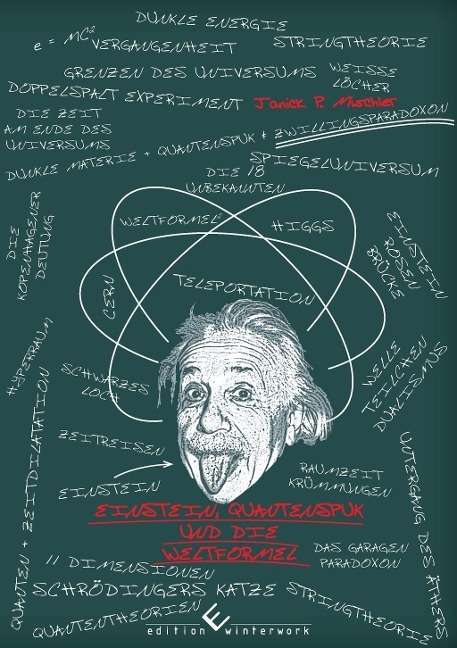 DUNKLE ENERGIE
e = MC²
VERGANGENHEIT
STRINGTHEORIE
GRENZEN DES UNIVERSUMS
WEISSE
LÖCHER
DOPPELSPALT EXPERIMENT
Janick P. Mischler
DIE ZEIT
AM ENDE DES
UNIVERSUMS
DUNKLE MATERIE + QUANTENSPUK + ZWILLINGSPARADOXON
SPIEGELUNIVERSUM
DIE 18
UNBEKANNTEN
DIE
KOPENHAGENER
DEUTUNG
WELTFORMEL
HIGGS
EINSTEIN
ROSEN
BRÜCKE
CERN
TELEPORTATION
HYPERRAUM
SCHWARZES
LOCH
WELLE
TEILCHEN
DUALISMUS
ZEITREISEN
EINSTEIN
RAUMZEIT
KRÜMMUNGEN
QUANTEN + ZEITDILATATION
UNTERGANG DES ÄTHERS
EINSTEIN, QUANTENSPUK
UND DIE
WELTFORMEL
11 DIMENSIONEN
DAS GARAGEN
PARADOXON
SCHRÖDINGERS KATZE
STRINGTHEORIE
QUANTENTHEORIEN
edition winterwork